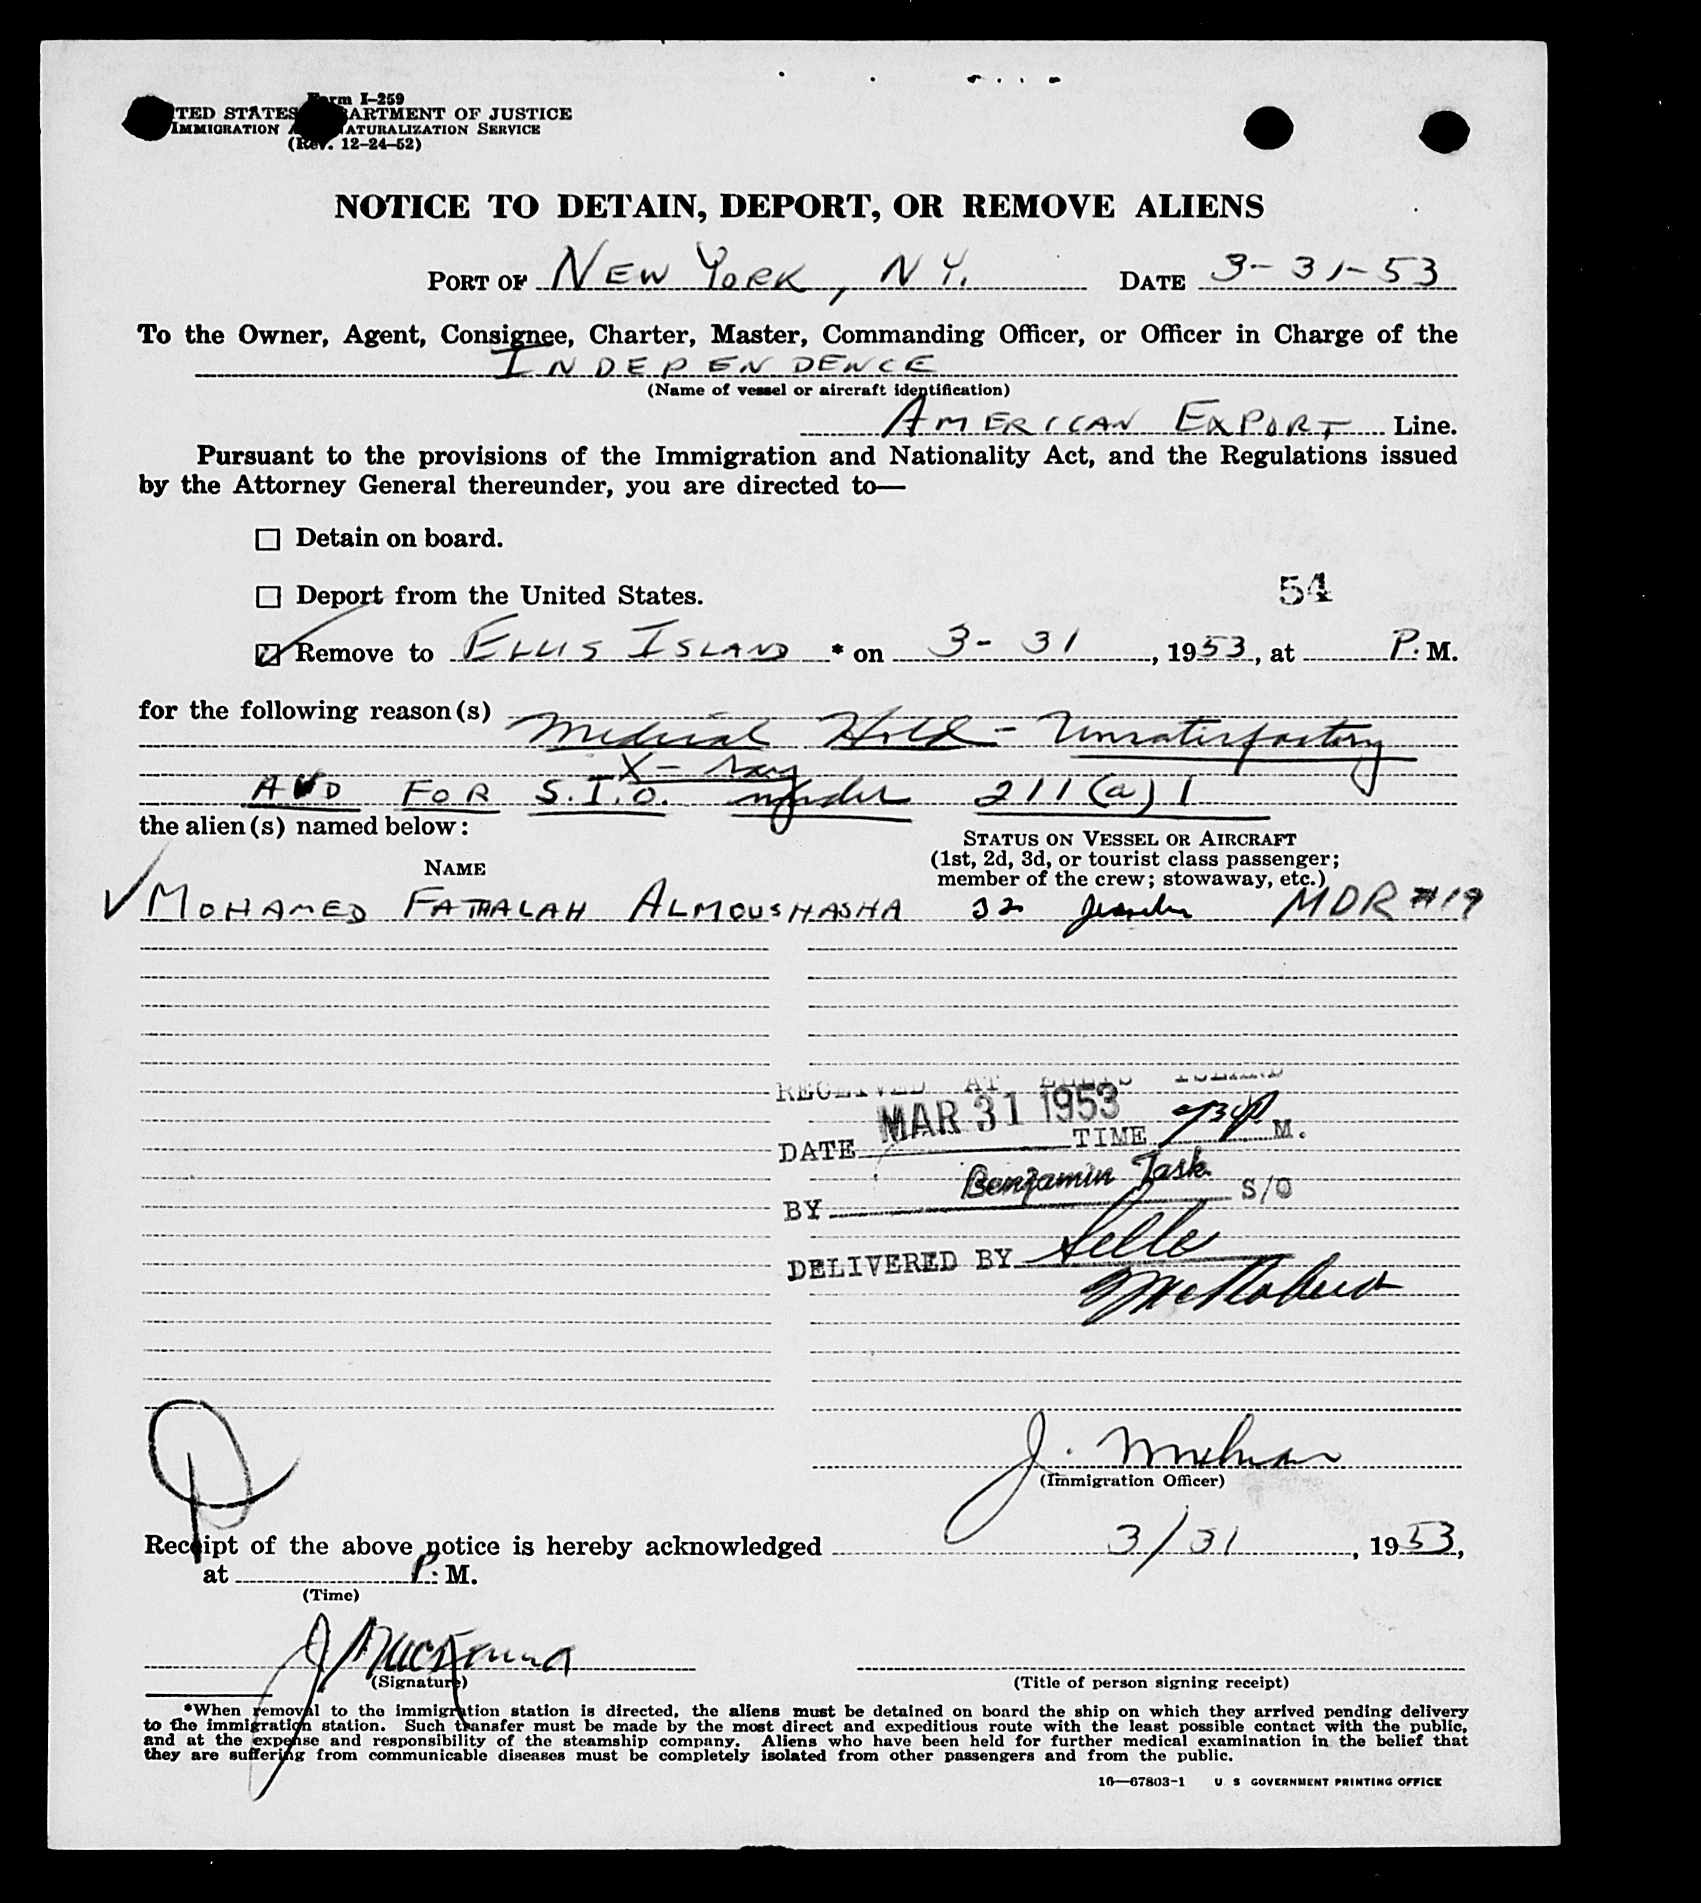 Form I-259
UNITED STATES DEPARTMENT OF JUSTICE
IMMIGRATION AND NATURALIZATION SERVICE
(Rev. 12-24-52)
NOTICE TO DETAIN, DEPORT, OR REMOVE ALIENS
PORT OF NEW YORK, N Y. DATE 3-31-53
To the Owner, Agent, Consignee, Charter, Master, Commanding Officer, or Officer in Charge of the
INDEPENDENCE
(Name of vessel or aircraft identification)
AMERICAN EXPORT Line.
Pursuant to the provisions of the Immigration and Nationality Act, and the Regulations issued
by the Attorney General thereunder, you are directed to—
☐ Detain on board.
☐ Deport from the United States.
54
☑ Remove to ELLIS ISLAND * on 3-31, 1953, at P. M.
for the following reason(s)
Medical Hold - Unsatisfactory
X-ray
AND FOR S.I.O. under 211(a)1
the alien(s) named below:
STATUS ON VESSEL OR AIRCRAFT
(1st, 2d, 3d, or tourist class passenger;
member of the crew; stowaway, etc.)
NAME
MOHAMED FATHALAH ALMOUSHASHA 32 MDR #19
RECEIVED AT ELLIS ISLAND
DATE MAR 31 1953 TIME M.
BY Benjamin Task S/O
DELIVERED BY Selle
J.
(Immigration Officer)
Receipt of the above notice is hereby acknowledged 3/31, 1953,
at P. M.
(Time)
J
(Signature)
(Title of person signing receipt)
*When removal to the immigration station is directed, the aliens must be detained on board the ship on which they arrived pending delivery
to the immigration station. Such transfer must be made by the most direct and expeditious route with the least possible contact with the public,
and at the expense and responsibility of the steamship company. Aliens who have been held for further medical examination in the belief that
they are suffering from communicable diseases must be completely isolated from other passengers and from the public.
16—67803-1 U S GOVERNMENT PRINTING OFFICE